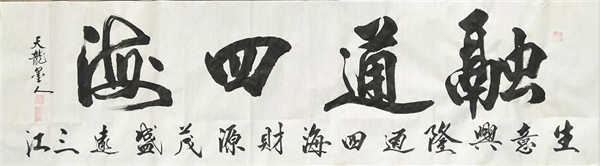 融通四海
生意興隆通四海財源茂盛達三江
天龍墨人